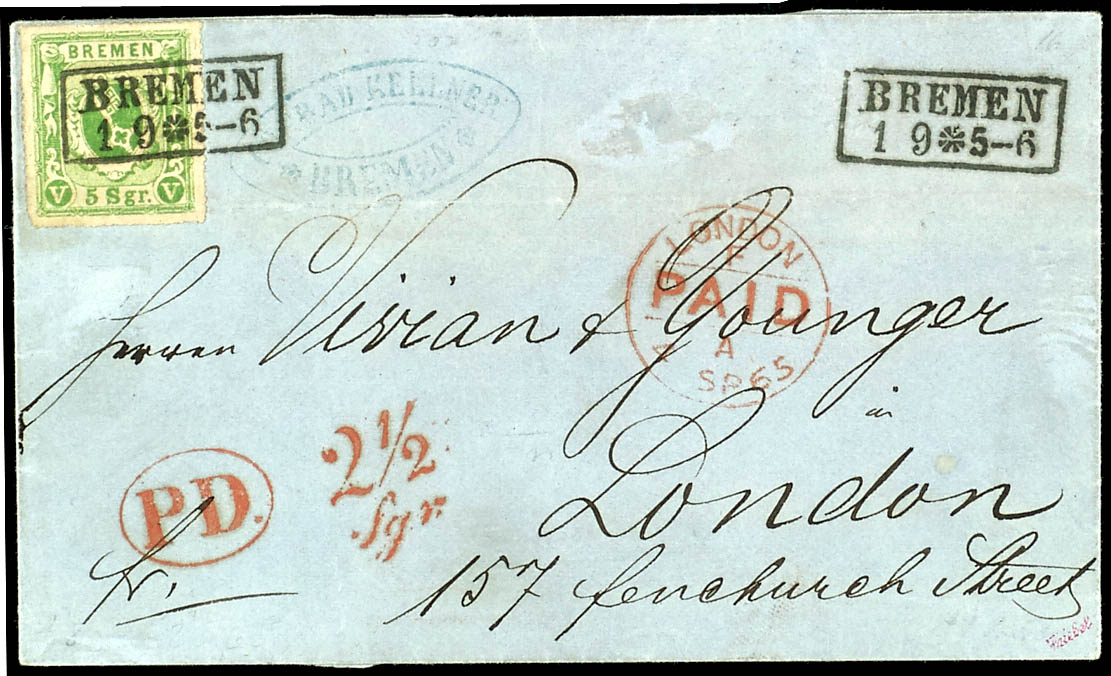 BREMEN
V 5 Sgr. V
BREMEN
1 9 ❋ 5-6
RAD KELLNER
❋ BREMEN ❋
BREMEN
1 9 ❋ 5-6
LONDON
F
PAID
A
SP 65
Herren Vivian & Younger
in
London
2 1/2
Sgr.
PD.
fr.
157 fenchurch Street